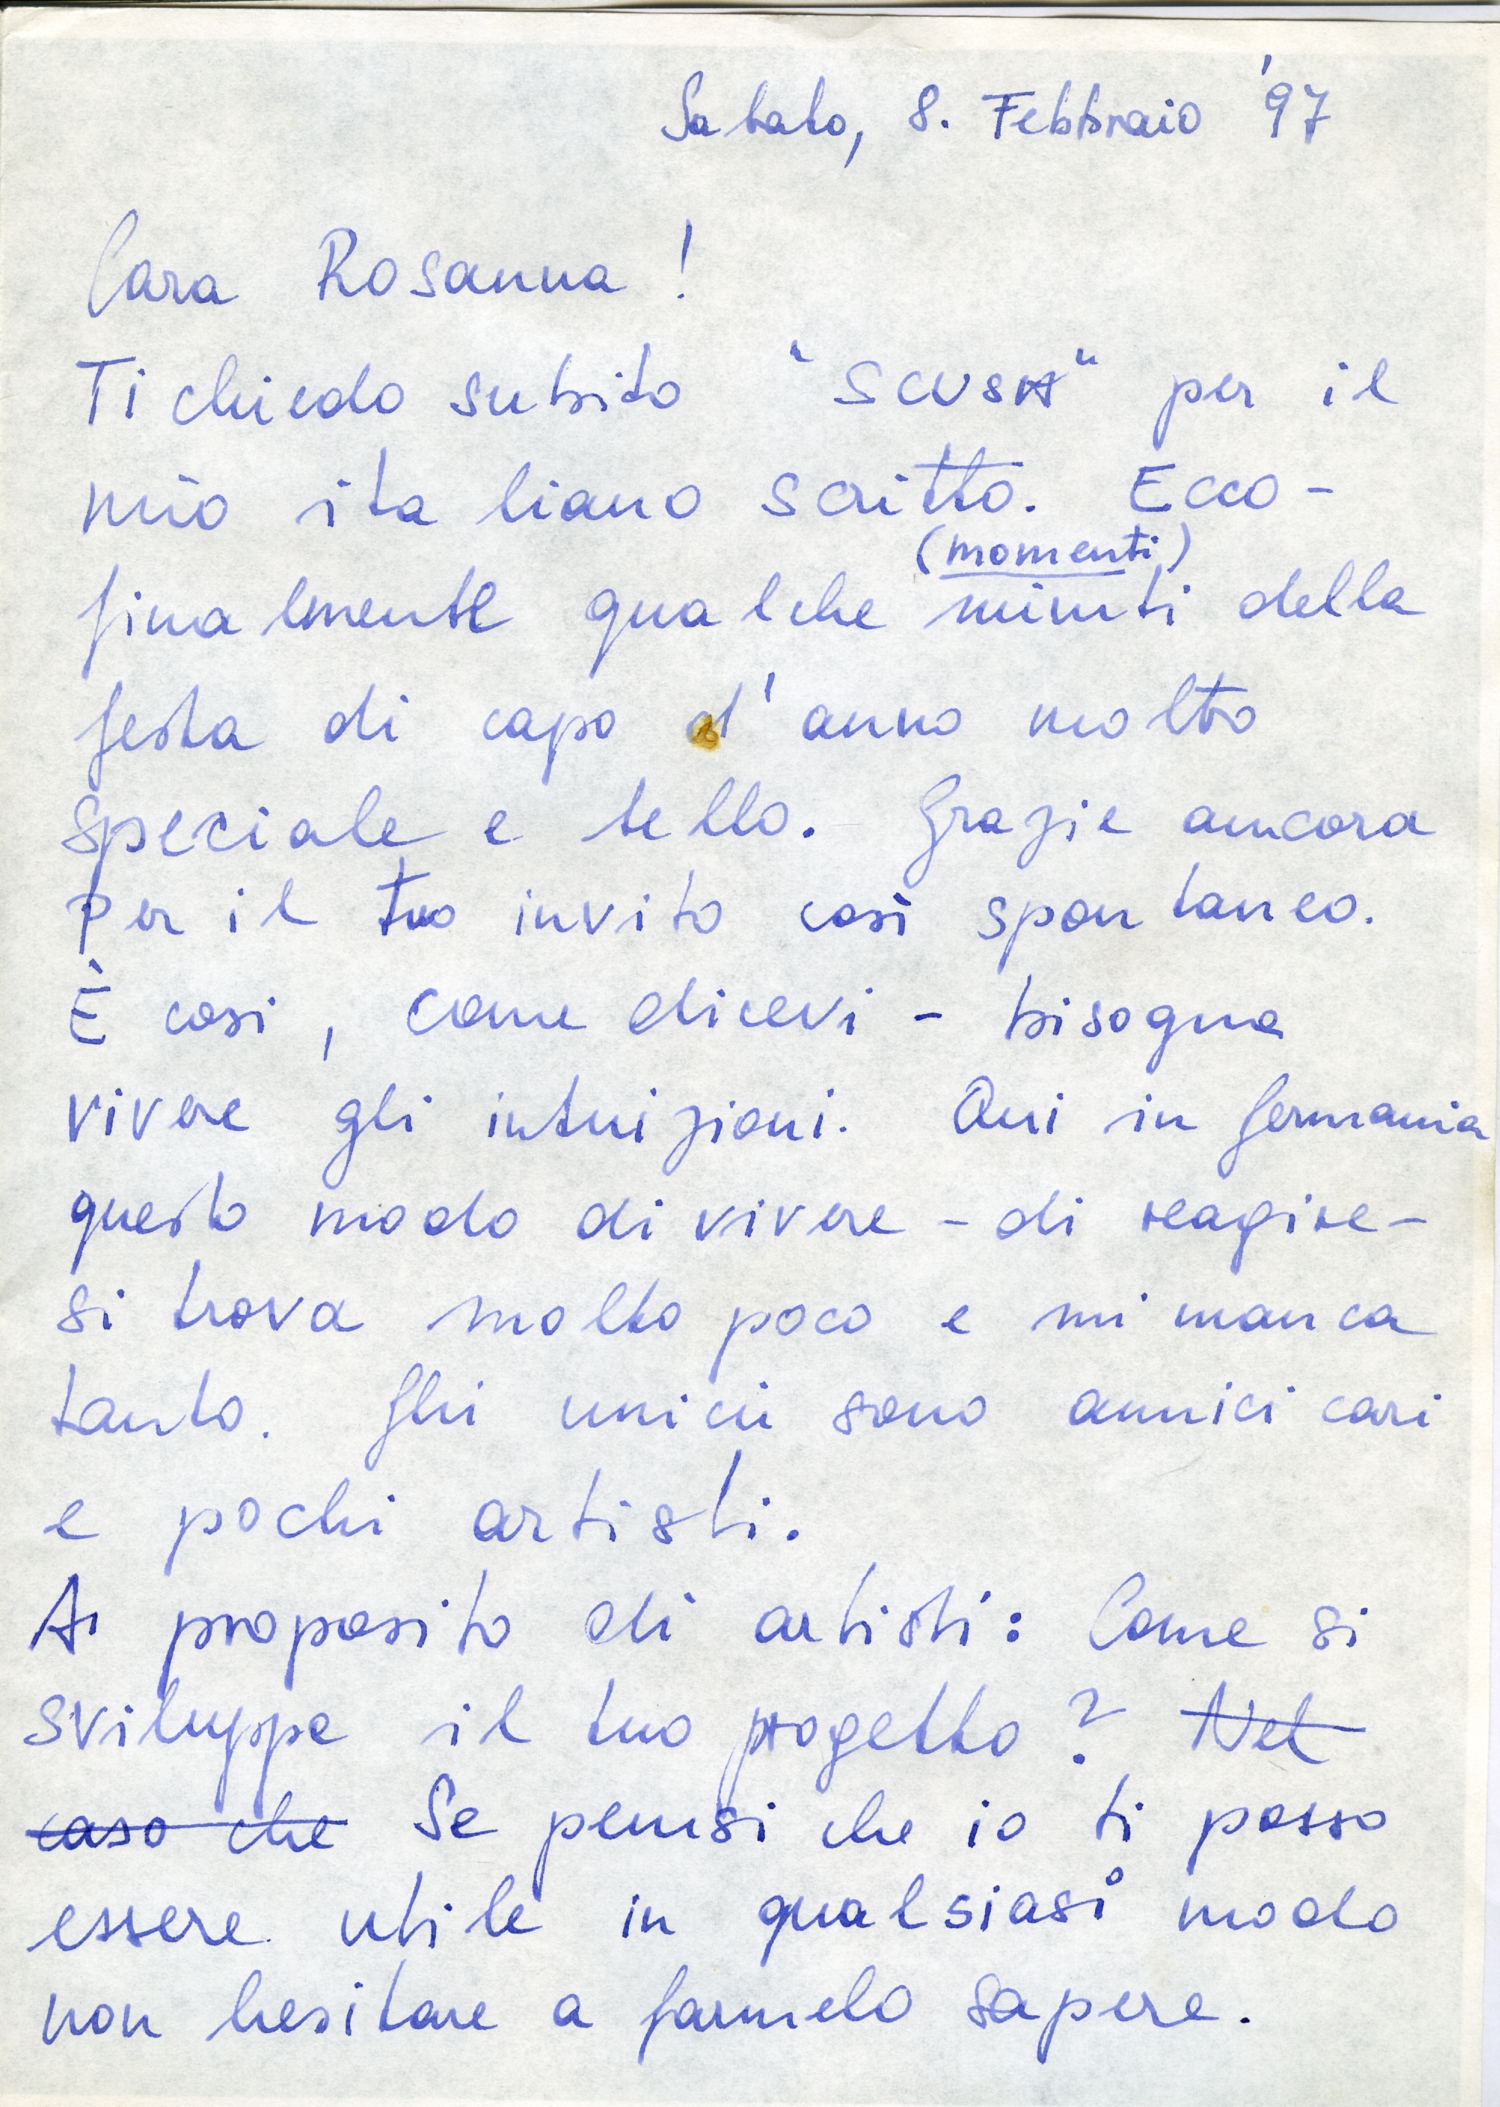 Sabato, 8. Febbraio '97
Cara Rosanna!
Ti chiedo subito "SCUSA" per il
mio italiano scritto. Ecco -
(momenti)
finalmente qualche minuti della
festa di capo d'anno molto
speciale e bello. Grazie ancora
per il tuo invito così spontaneo.
È cosi, come dicevi - bisogna
vivere gli intuizioni. Qui in Germania
questo modo di vivere - di reagire -
si trova molto poco e mi manca
tanto. Ghi unici sono amici cari
e pochi artisti.
A proposito di artisti: Come si
sviluppe il tuo progetto? Nel
caso che Se pensi che io ti posso
essere utile in qualsiasi modo
non hesitare a farmelo sapere.